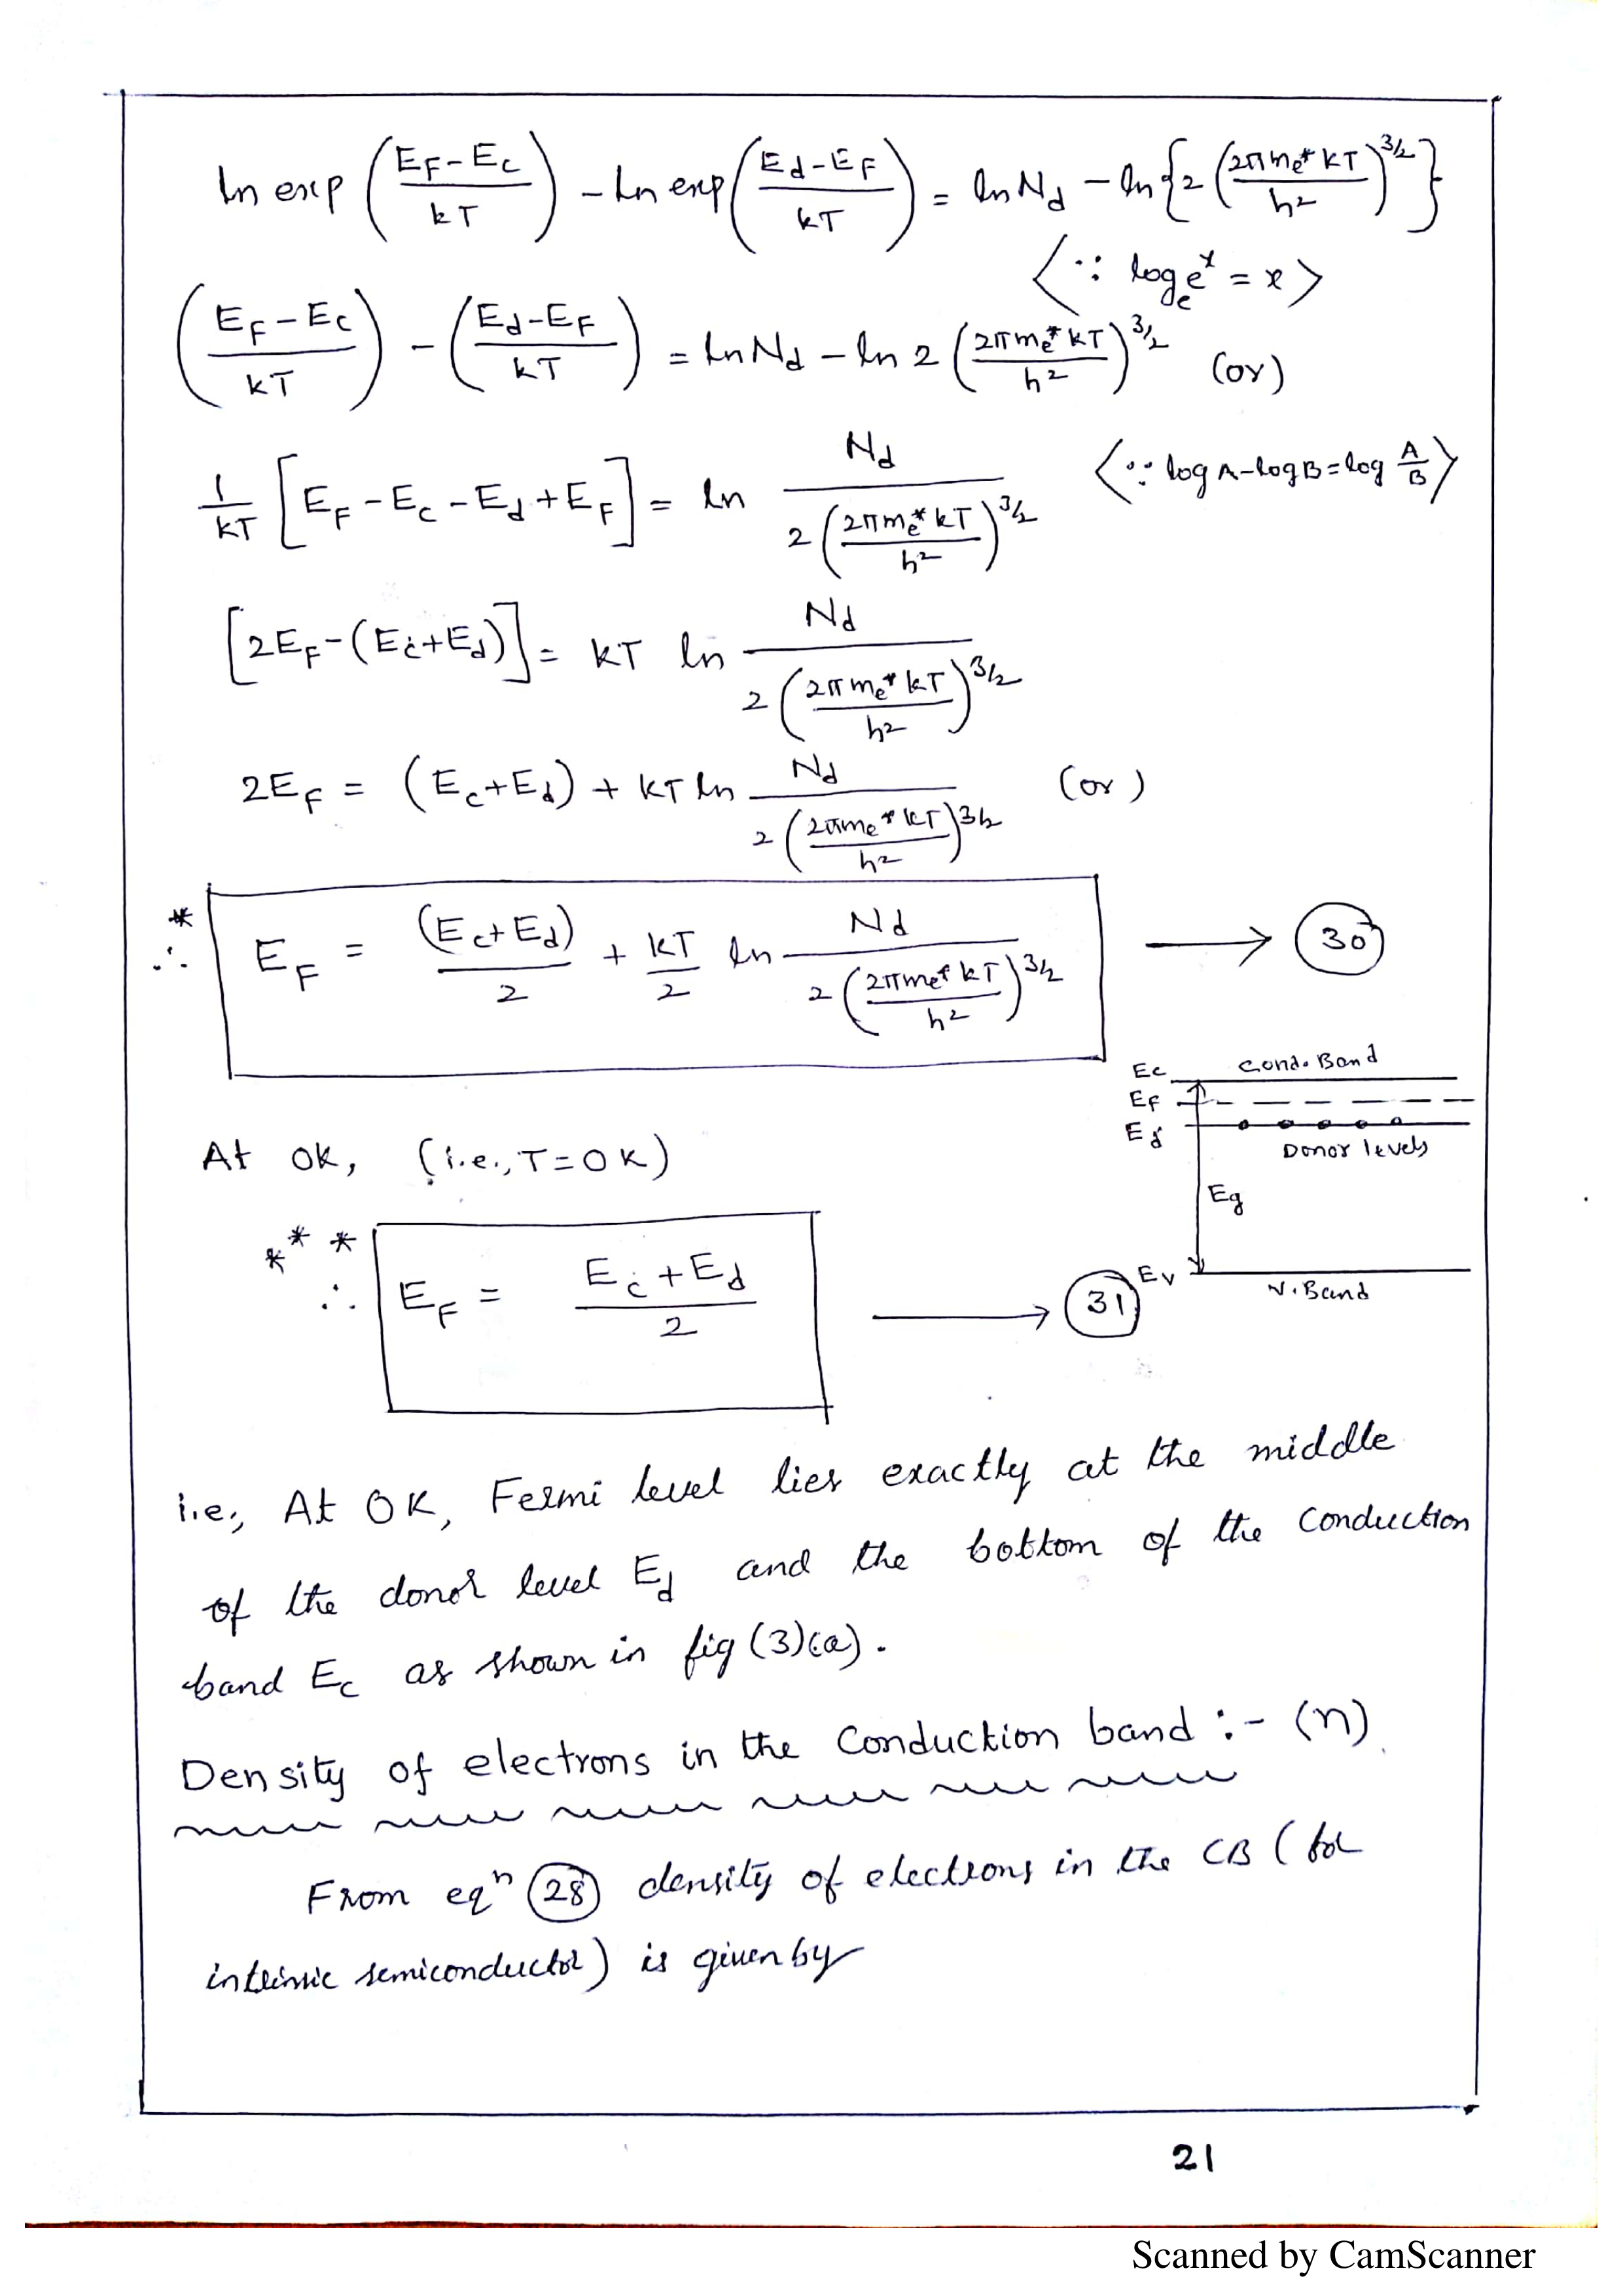 ln exp ((E_F - E_c)/kT) - ln exp ((E_d - E_F)/kT) = ln N_d - ln {2 (2π m_e* kT / h²)^3/2}
⟨∵ log_e e^x = x⟩
((E_F - E_c)/kT) - ((E_d - E_F)/kT) = ln N_d - ln 2 (2π m_e* kT / h²)^3/2 (or)
1/kT [E_F - E_c - E_d + E_F] = ln N_d / 2 (2π m_e* kT / h²)^3/2 ⟨∵ log A - log B = log A/B⟩
[2E_F - (E_c + E_d)] = kT ln N_d / 2 (2π m_e* kT / h²)^3/2
2E_F = (E_c + E_d) + kT ln N_d / 2 (2π m_e* kT / h²)^3/2 (or)
* ∴ E_F = (E_c + E_d)/2 + kT/2 ln N_d / 2 (2π m_e* kT / h²)^3/2 → 30
Ec Cond. Band
Ef
Ed
Donor levels
Eg
Ev
V. Band
At 0K, (i.e., T = 0 K)
*** ∴ E_F = (E_c + E_d)/2 → 31
i.e., At 0K, Fermi level lies exactly at the middle
of the donor level E_d and the bottom of the conduction
band E_c as shown in fig (3)(a).
Density of electrons in the Conduction band :- (n)
From eqⁿ 28 density of electrons in the CB (for
intrinsic semiconductor) is given by
21
Scanned by CamScanner